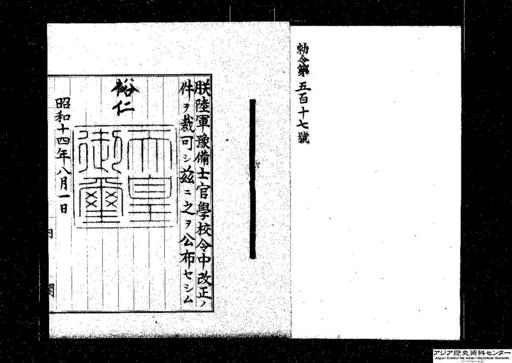 勅令第五百十七號
朕陸軍豫備士官學校令中改正ノ
件ヲ裁可シ茲ニ之ヲ公布セシム
裕仁
天皇
御璽
昭和十四年八月一日
内閣
アジア歴史資料センター
Japan Center for Asian Historical Records